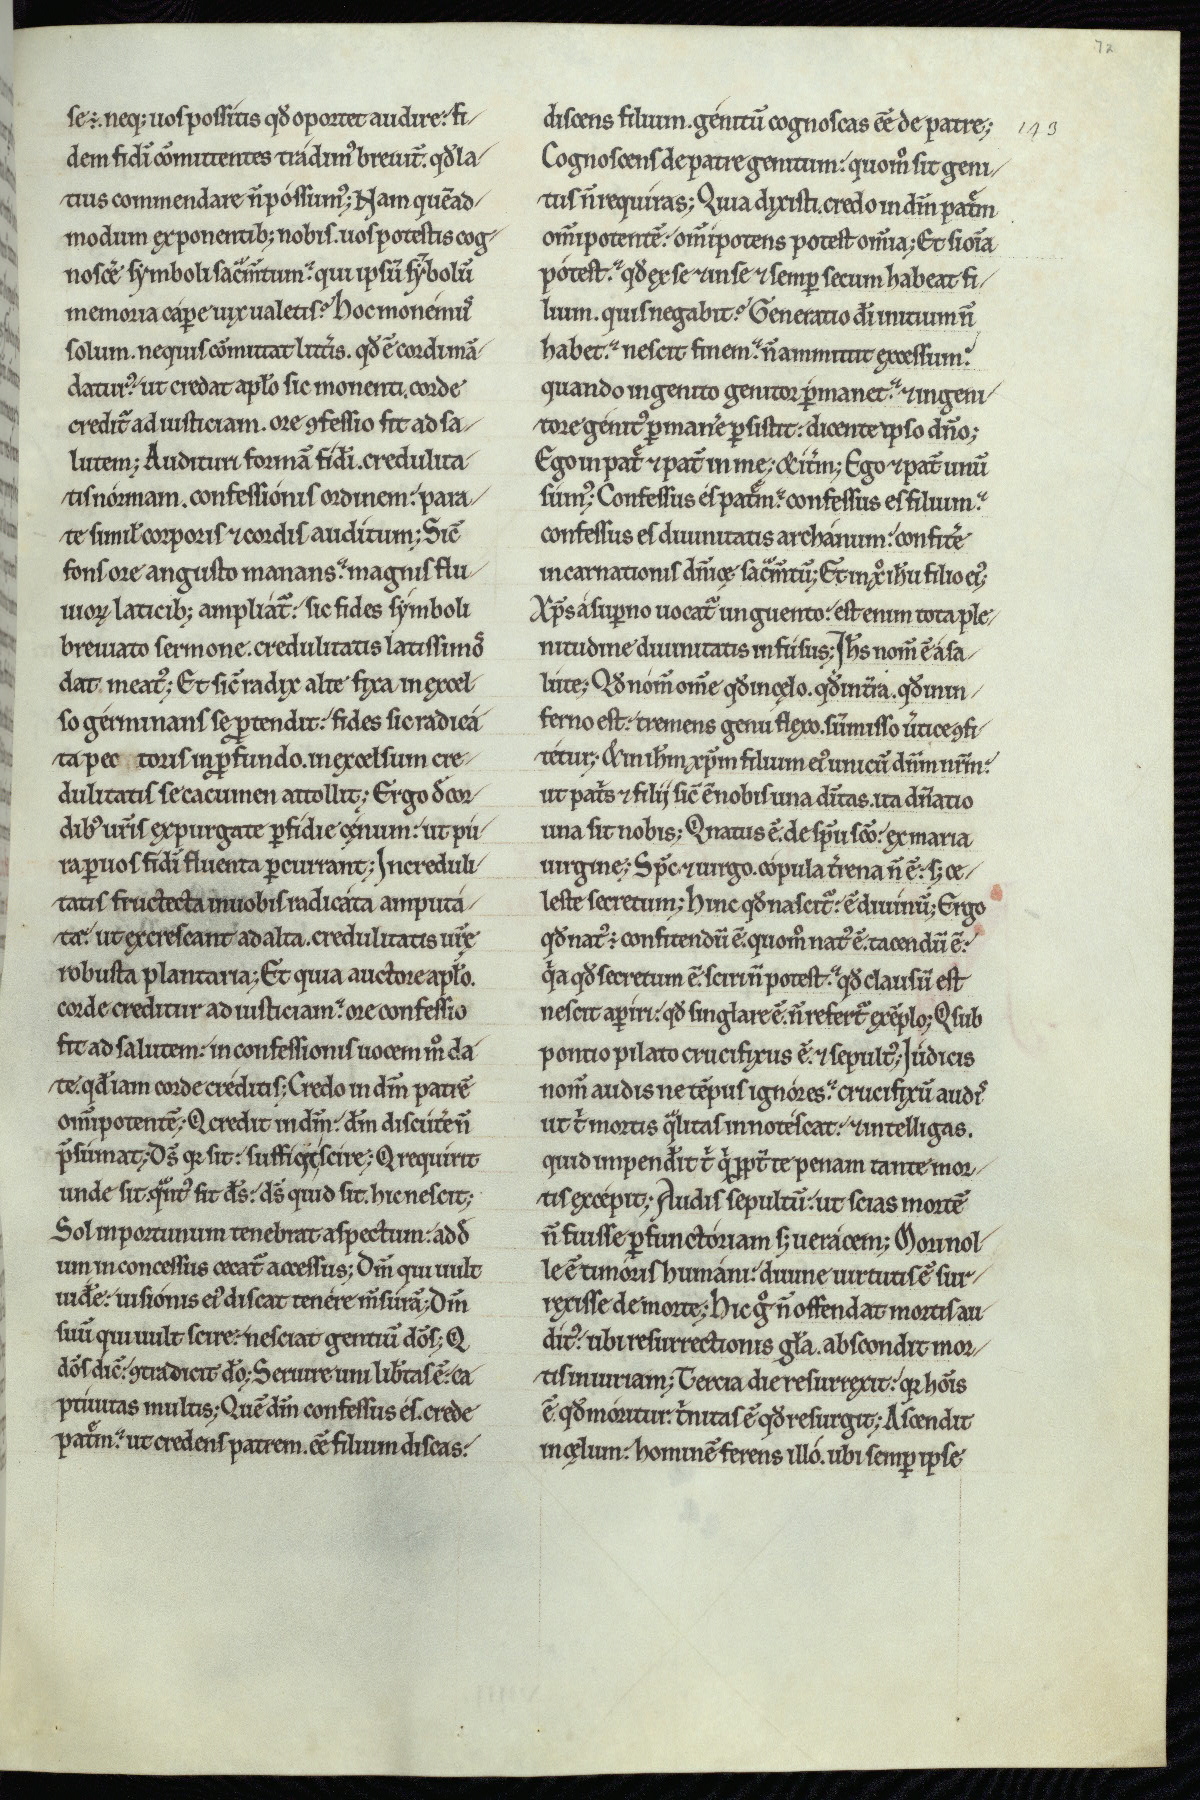 72
143
se: neq; uos possitis qđ oportet audire: fi-
dem fidi cōmittentes tradim᷒ breuit̄. qđ la-
tius commendare n̄ possum᷒; Nam quēad-
modum exponentib; nobis. uos potestis cog-
noscē symboli sac̄mtum: qui ipsū sȳbolū
memoria cape uix ualetis? Hoc monem᷒
solum. nequis cōmittat litt̄is. qđ ē cordi mā-
datur: ut credat ap̄lo sic monenti. corde
credit̄ ad iusticiam. ore ꝯfessio fit ad sa-
lutem; Audituri formā fidi. credulita-
tis normam. confessionis ordinem: para-
te simil̄ corporis ⁊ cordis auditum; Sic̄
fons ore angusto manans: magnis flu-
uioꝝ laticib; ampliat̄: sic fides symboli
breuiato sermone. credulitatis latissimos
dat meat᷒; Et sic̄ radix alte fixa in excel-
so germinans se ꝑtendit: fides sic radica-
ta pec toris in ꝓfundo. in excelsum cre-
dulitatis se cacumen attollit; Ergo đ cor-
dib᷒ ur̄is expurgate ꝑfidie cęnum: ut pu-
ra ꝑ uos fidi fluenta ꝑcurrant; Increduli-
tatis fructecta in uobis radicata amputa-
te: ut excrescant ad alta. credulitatis ur̄e
robusta plantaria; Et quia auctore ap̄lo.
corde creditur ad iusticiam: ore confessio
fit ad salutem: in confessionis uocem m̊ da-
te. qđ iam corde creditis; Credo in dm̄ patrē
om̄ipotentē; Q credit in dm̄: dm̄ discutē n̄
p̄sumat; Ds̄ qr sit: sufficit scire; Q requirit
unde sit. qnt᷒ sit ds̄: ds̄ quid sit. hic nescit;
Sol inportunum tenebrat aspectum: ad đ
um inconcessus cecat̄ accessus; Dm̄ qui uult
uidē: uisionis ei᷒ discat tenere m̄surā; Dm̄
suū qui uult scire: nesciat gentiū dōs; Q
dōs dic̄: ꝯtradicit dō; Seruire uni lib̄tas ē: ca-
ptiuitas multis; Quē dm̄ confessus es. crede
pat̄m: ut credens patrem. eē filium discas:
discens filium. genitū cognoscas eē de patre;
Cognoscens de patre genitum: quom̊ sit geni-
tus n̄ requiras; Quia dixisti. credo in dm̄ pat̄m
om̄ipotentē: om̄ipotens potest om̄ia; Et si oīa
potest: qđ ex se ⁊ in se ⁊ semꝑ secum habeat fi-
lium. quis negabit? Generatio dī initium n̄
habet: nescit finem: n̄ ammittit excessum:
quando ingenito genitor ꝑmanet: ⁊ in geni-
tore genit᷒ ꝑmane ꝑsistit: dicente ipso dn̄o;
Ego in pat̄ ⁊ pat̄ in me; & it̄m; Ego ⁊ pat̄ unū
sum᷒; Confessus es pat̄m: confessus es filium:
confessus es diuinitatis archanum: confitē
incarnationis dn̄icę sac̄mtū; Et in xp̄o ih̄u filio ei᷒;
Xp̄s a suꝑno uocat̄ unguento: est enim tota ple-
nitudine diuinitatis infusus; Ih̄s nom̄ ē a sa-
lute; Qđ nom̄ om̄e qđ in cęlo. qđ in t̄ra. qđ in in-
ferno est: tremens genu flexo. sūmisso u̅tice ꝯfi-
tetur; & in ih̄m xp̄m filium ei᷒ unicū dn̄m nr̄m:
ut pat̄s ⁊ filij sic̄ ē nobis una dīitas. ita dn̄atio
una sit nobis; Q natus ē. de sp̄u sc̄o: ex maria
uirgine; Sp̄c ⁊ uirgo. copula t̄rena n̄ ē: sꝫ ce-
leste secretum; Hinc qđ nascit̄: ē diuinū; Ergo
qđ nat᷒: confitendū ē. quom̊ nat᷒ ē. tacendū ē:
q̄a qđ secretum ē. sciri n̄ potest: qđ clausū est
nescit aꝑiri: qđ singlare ē. n̄ refert̄ exēplo; Q sub
pontio pilato crucifixus ē. ⁊ sepult᷒; Iudicis
nom̄ audis ne tēpus ignores: crucifixū audi᷒
ut t̄ mortis q̄litas innotescat: ⁊ intelligas.
quid impendit t̄ q̄ ꝓpt̄ te penam tante mor-
tis excepit; Audis sepultū: ut scias mortē
n̄ fuisse ꝑfunctoriam sꝫ ueracem; Mori nol-
le ē timoris humani: diuine uirtutis ē sur-
rexisse de morte; Hic g̊ n̄ offendat mortis au-
dit᷒: ubi resurrectionis gl̄a. abscondit mor-
tis iniuriam; Tercia die resurrexit: qr hōis
ē qđ moritur: t̄nitas ē qđ resurgit; Ascendit
in cęlum: hominē ferens illo. ubi semꝑ ipse